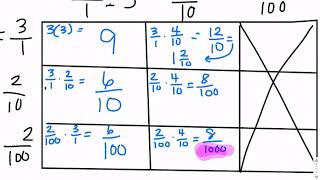 3/1   10   100
= 3/1   3(3) = 9   3/1 · 4/10 = 12/10 =
1 2/10
2/10   3/1 · 2/10 = 6/10   2/10 · 4/10 = 8/100
2/100   2/100 · 3/1 = 6/100   2/100 · 4/10 = 8/1000